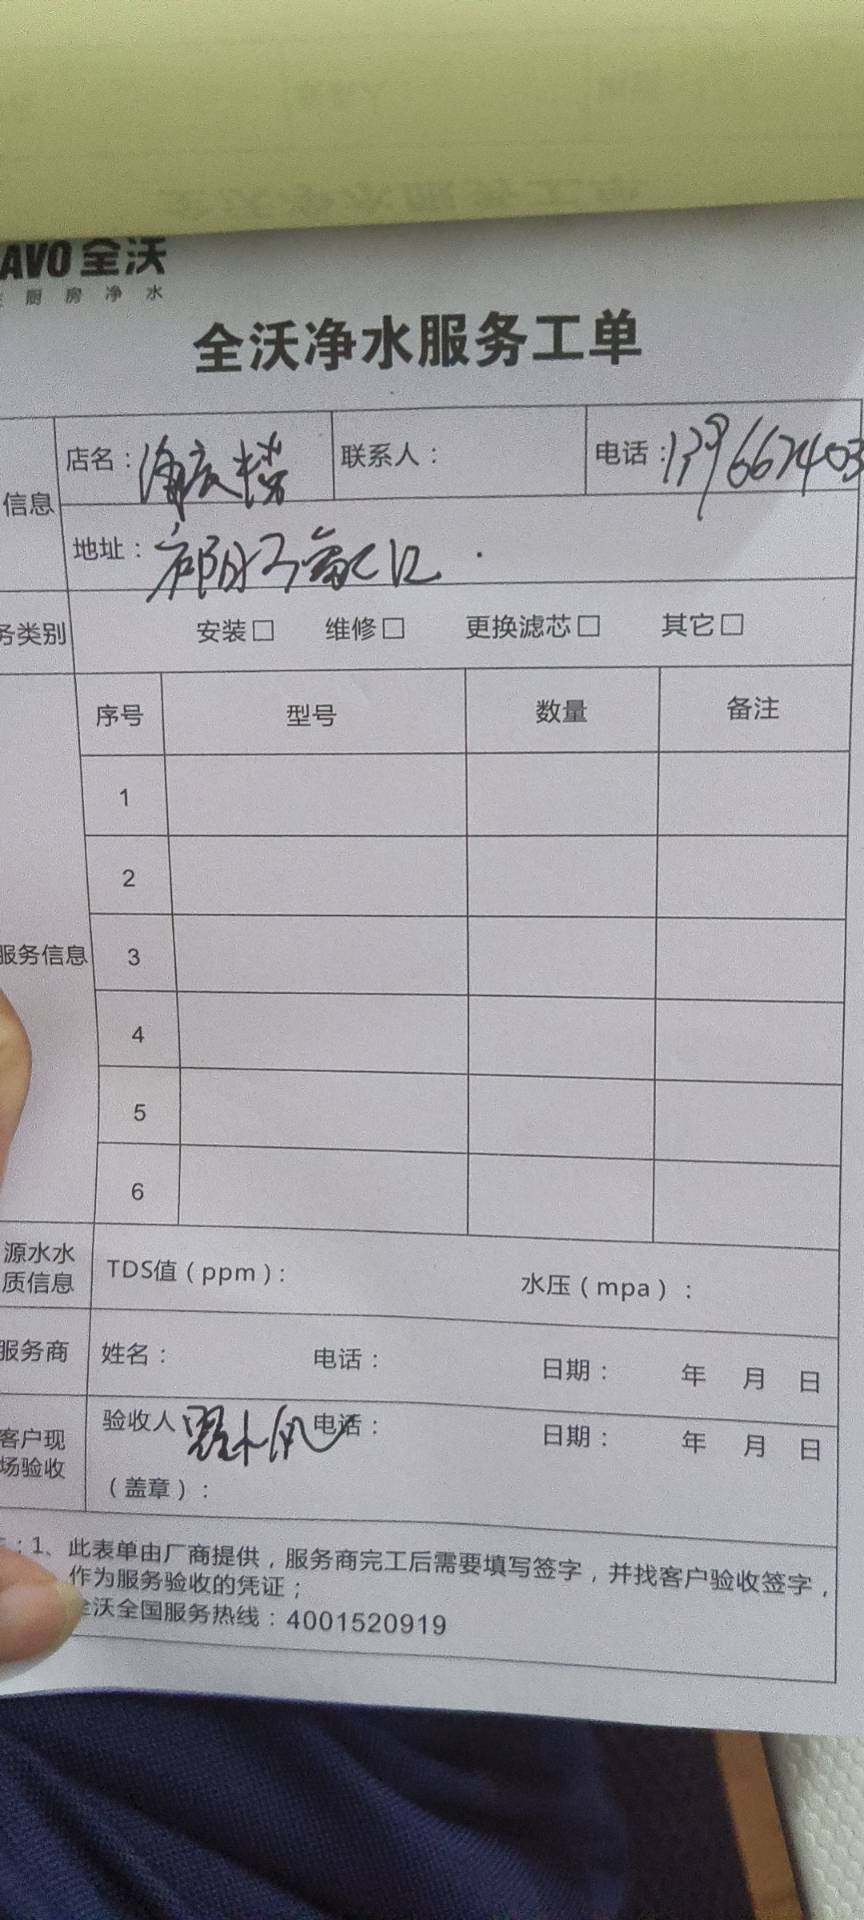 AVO 全沃
厨房净水
全沃净水服务工单
信息
店名：
联系人：
电话：
地址：
务类别
安装□ 维修□ 更换滤芯□ 其它□
服务信息
序号 型号 数量 备注
1
2
3
4
5
6
源水水质信息
TDS值（ppm）：
水压（mpa）：
服务商
姓名： 电话： 日期： 年 月 日
客户现场验收
验收人 电话： 日期： 年 月 日
（盖章）：
：1、此表单由厂商提供，服务商完工后需要填写签字，并找客户验收签字，
作为服务验收的凭证；
全沃全国服务热线：4001520919